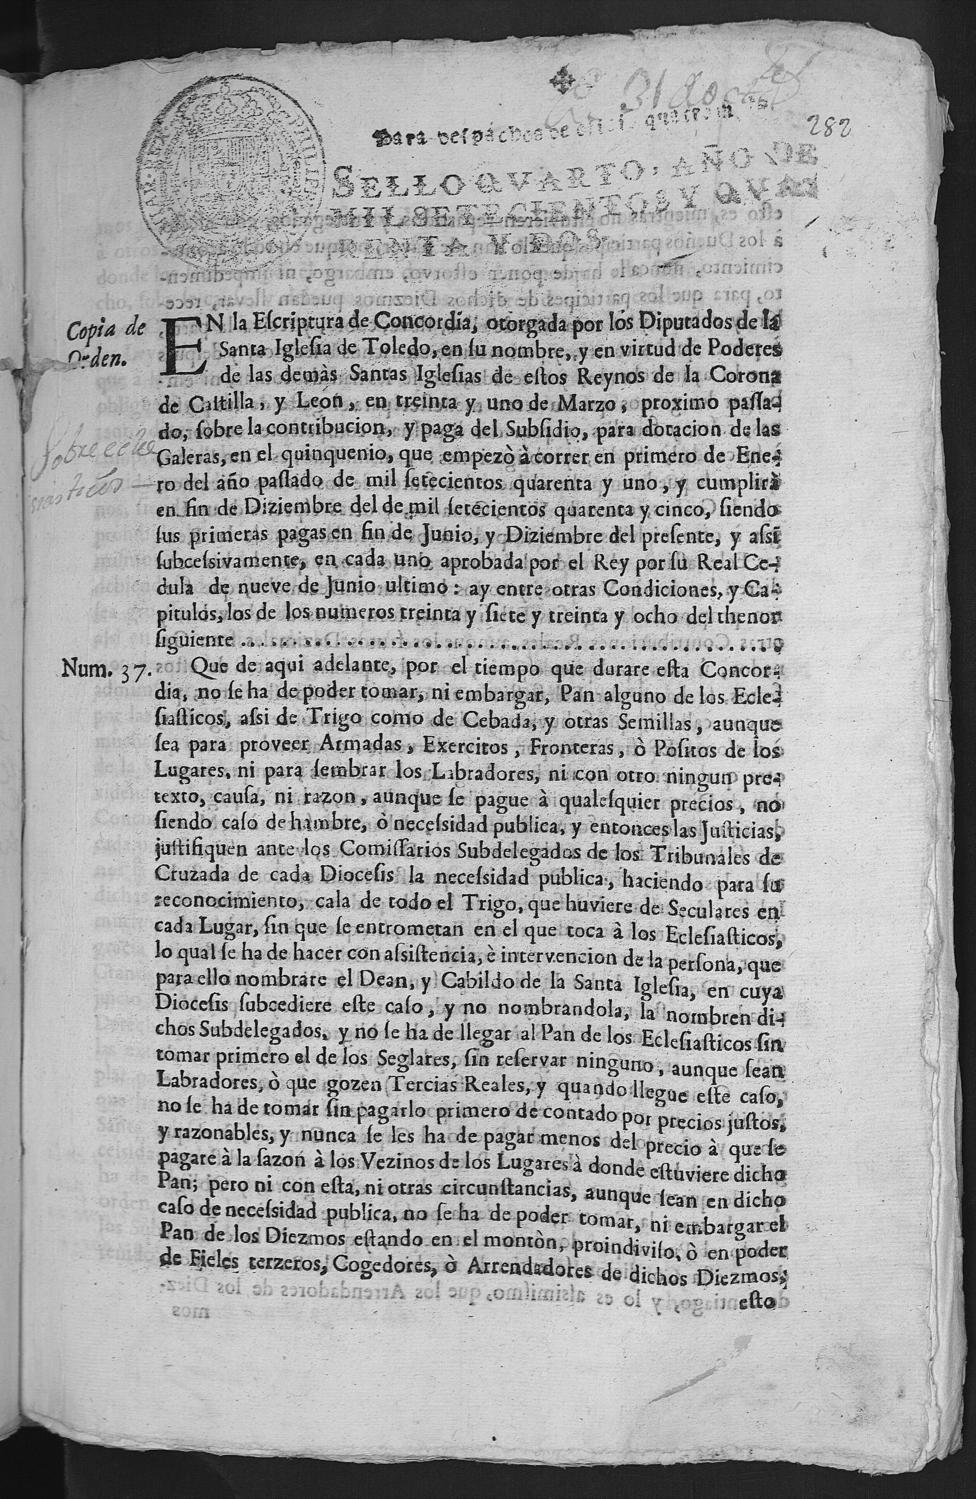 31 Agosto
282
Para despachos de oficio quatro mrs.
SELLO QVARTO, AÑO DE
MIL SETECIENTOS Y QVA-
RENTA Y DOS
Copia de
Orden.
EN la Escriptura de Concordia, otorgada por los Diputados de la
Santa Iglesia de Toledo, en su nombre, y en virtud de Poderes
de las demàs Santas Iglesias de estos Reynos de la Corona
de Castilla, y Leon, en treinta y uno de Marzo, proximo passa-
do, sobre la contribucion, y paga del Subsidio, para dotacion de las
Galeras, en el quinquenio, que empezò à correr en primero de Ene-
ro del año passado de mil setecientos quarenta y uno, y cumplirà
en fin de Diziembre del de mil setecientos quarenta y cinco, siendo
sus primeras pagas en fin de Junio, y Diziembre del presente, y assi
subcessivamente, en cada uno aprobada por el Rey por su Real Ce-
dula de nueve de Junio ultimo: ay entre otras Condiciones, y Ca-
pitulos, los de los numeros treinta y siete y treinta y ocho del thenor
siguiente
Sobre ecles
siasticos
Num. 37. Que de aqui adelante, por el tiempo que durare esta Concor-
dia, no se ha de poder tomar, ni embargar, Pan alguno de los Ecle-
siasticos, assi de Trigo como de Cebada, y otras Semillas, aunque
sea para proveer Armadas, Exercitos, Fronteras, ò Positos de los
Lugares, ni para sembrar los Labradores, ni con otro ningun pre-
texto, causa, ni razon, aunque se pague à qualesquier precios, no
siendo caso de hambre, ò necessidad publica, y entonces las Justicias,
justifiquen ante los Comissarios Subdelegados de los Tribunales de
Cruzada de cada Diocesis la necessidad publica, haciendo para su
reconocimiento, cala de todo el Trigo, que huviere de Seculares en
cada Lugar, sin que se entrometan en el que toca à los Eclesiasticos,
lo qual se ha de hacer con assistencia, è intervencion de la persona, que
para ello nombrare el Dean, y Cabildo de la Santa Iglesia, en cuya
Diocesis subcediere este caso, y no nombrandola, la nombren di-
chos Subdelegados, y no se ha de llegar al Pan de los Eclesiasticos sin
tomar primero el de los Seglares, sin reservar ninguno, aunque sean
Labradores, ò que gozen Tercias Reales, y quando llegue este caso,
no se ha de tomar sin pagarlo primero de contado por precios justos,
y razonables, y nunca se les ha de pagar menos del precio à que se
pagare à la sazon à los Vezinos de los Lugares à donde estuviere dicho
Pan; pero ni con esta, ni otras circunstancias, aunque sean en dicho
caso de necessidad publica, no se ha de poder tomar, ni embargar el
Pan de los Diezmos estando en el montòn, proindiviso, ò en poder
de Fieles terzeros, Cogedores, ò Arrendadores de dichos Diezmos,
esto